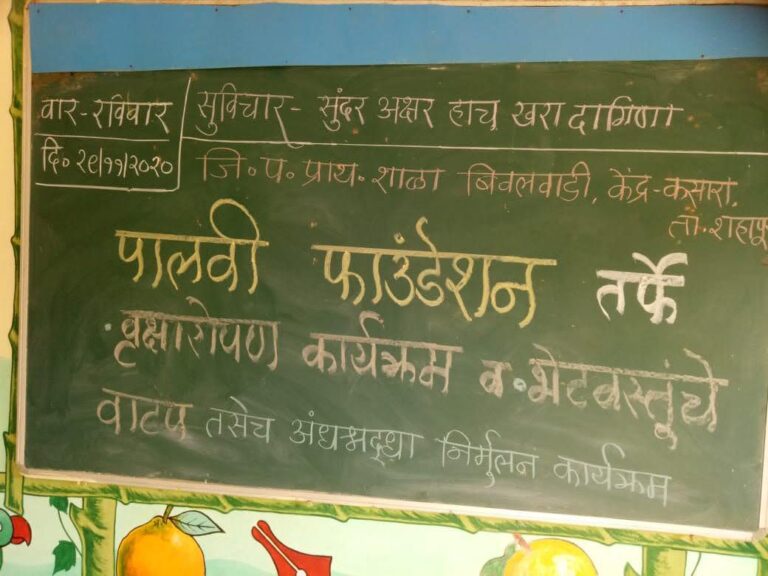 वार-रविवार
दि. २९/११/२०२०
सुविचार- सुंदर अक्षर हाच खरा दागिणा
जि.प.प्राथ.शाळा बिवलवाडी, केंद्र-कसारा.
ता.शहापूर
पालवी फाउंडेशन तर्फे
वृक्षारोपण कार्यक्रम व भेटवस्तूंचे
वाटप तसेच अंधश्रद्धा निर्मुलन कार्यक्रम